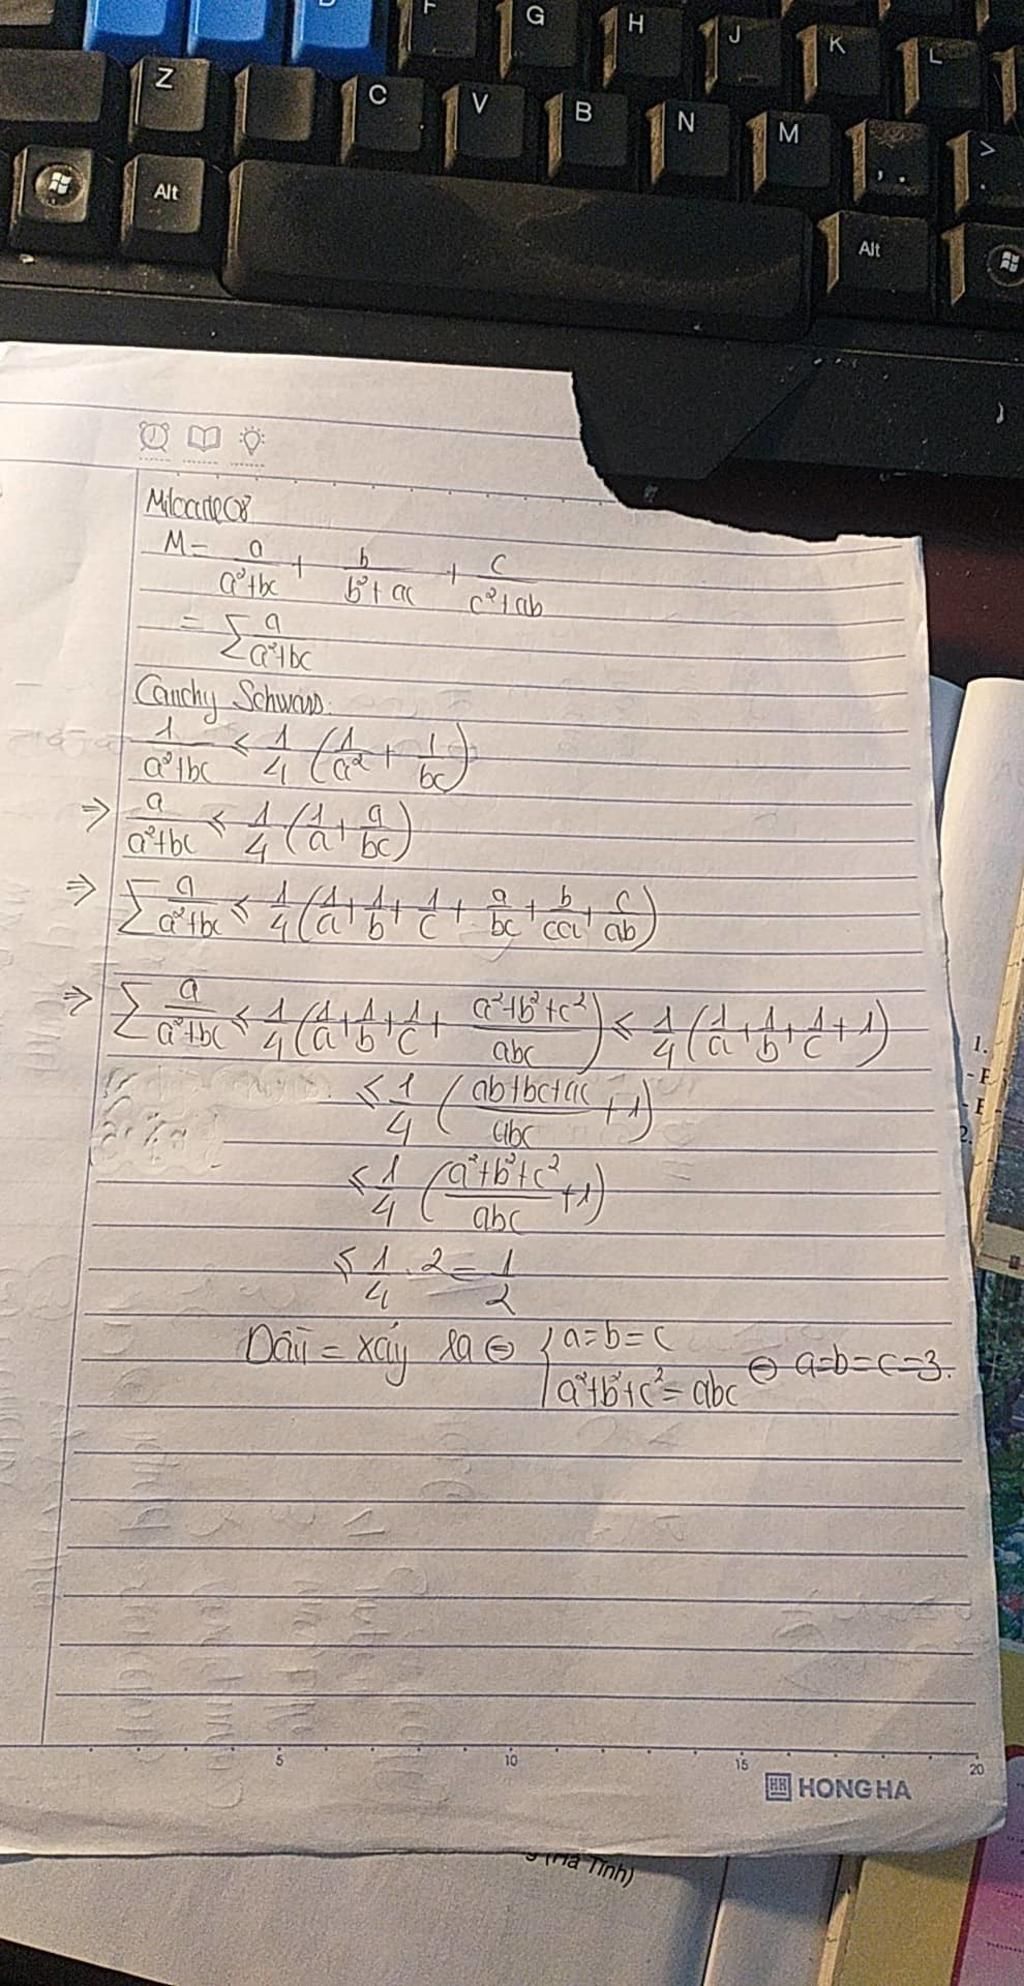 F G H J K L
Z C V B N M , . > .
Alt Alt
M = a/(a²+bc) + b/(b²+ac) + c/(c²+ab)
= ∑ a/(a²+bc)
Cauchy Schwars.
1/(a²+bc) ≤ 1/4 (1/a² + 1/bc)
⇒ a/(a²+bc) ≤ 1/4 (1/a + a/bc)
⇒ ∑ a/(a²+bc) ≤ 1/4 (1/a + 1/b + 1/c + a/bc + b/ca + c/ab)
⇒ ∑ a/(a²+bc) ≤ 1/4 (1/a + 1/b + 1/c + (a²+b²+c²)/abc) ≤ 1/4 (1/a + 1/b + 1/c + 1)
≤ 1/4 ((ab+bc+ac)/abc + 1)
≤ 1/4 ((a²+b²+c²)/abc + 1)
≤ 1/4 . 2 = 1/2
Dấu = xảy ra ⇔ { a=b=c
a²+b²+c² = abc ⇔ a=b=c=3.
5 10 15 20
HH HONG HA
(Hà Tĩnh)
1.
2.